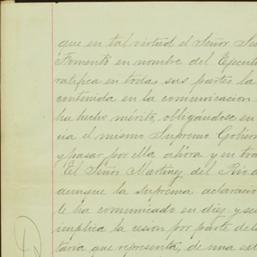 que en tal virtud el Señor
Fomento en nombre del
ratifica en todas sus partes la
contenida en la comunicacion
ha hecho mérito, obligándose en
cia el mismo Supremo
y pasar por ella ahora y
El Señor Martinez del
aunque la suprema
le ha comunicado en diez y
implica la cesion por parte
que representa, de una